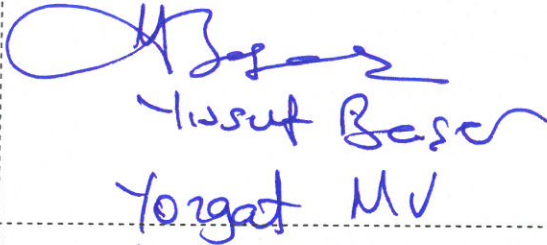 Yusuf Başer
Yozgat MV